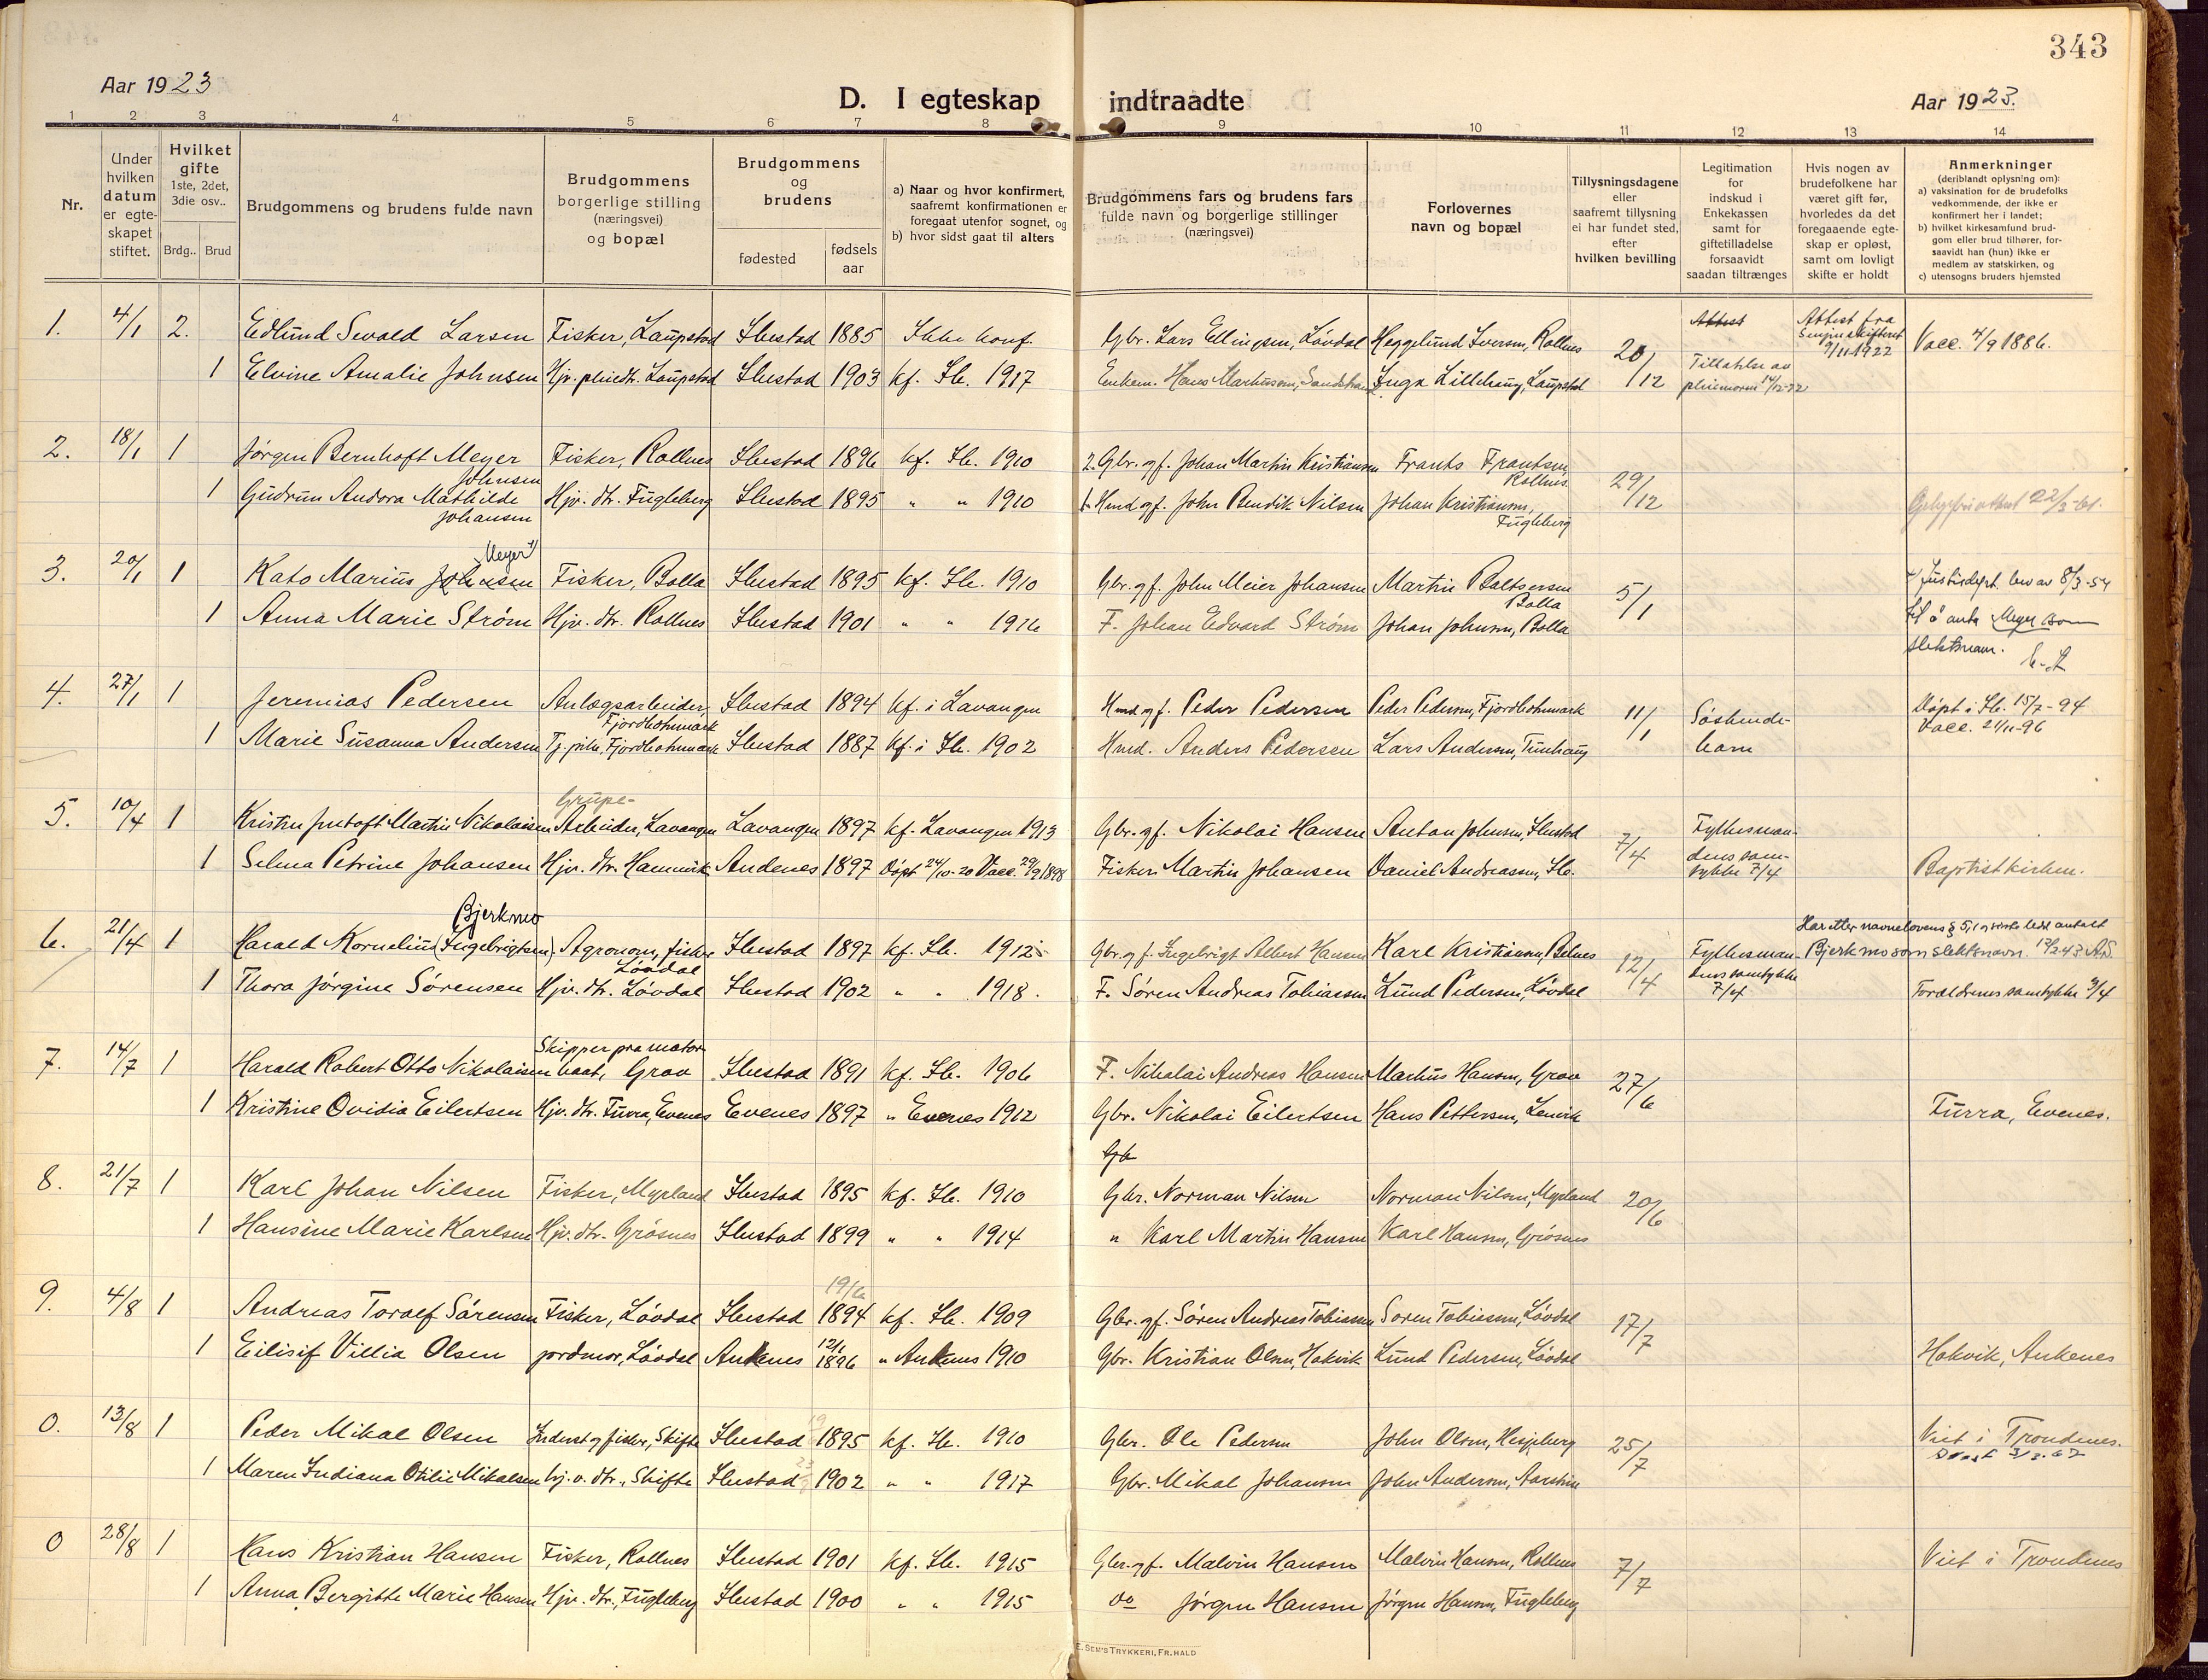 343
Aar 1923
D. I egteskap indtraadte
Aar 1923.
1 2 3 4 5 6 7 8 9 10 11 12 13 14
Nr.
Under hvilken datum er egteskapet stiftet.
Hvilket gifte 1ste, 2det, 3die osv..
Brdg.. Brud
Brudgommens og brudens fulde navn
Brudgommens borgerlige stilling (næringsvei) og bopæl
Brudgommens og brudens
fødested
fødsels aar
a) Naar og hvor konfirmert, saafremt konfirmationen er foregaat utenfor sognet, og
b) hvor sidst gaat til alters
Brudgommens fars og brudens fars fulde navn og borgerlige stillinger (næringsvei)
Forlovernes navn og bopæl
Tillysningsdagene eller saafremt tillysning ei har fundet sted, efter hvilken bevilling
Legitimation for indskud i Enkekassen samt for giftetilladelse forsaavidt saadan tiltrænges
Hvis nogen av brudefolkene har været gift før, hvorledes da det foregaaende egteskap er opløst, samt om lovligt skifte er holdt
Anmerkninger (deriblandt oplysning om):
a) vaksination for de brudefolks vedkommende, der ikke er konfirmert her i landet;
b) hvilket kirkesamfund brudgom eller brud tilhører, forsaavidt han (hun) ikke er medlem av statskirken, og
c) utensogns bruders hjemsted
1. 4/1 2. Edlund Sevald Larsen Fisker, Laupstad Ibestad 1885 Ikke konf. Gbr. Lars Ellingsen, Løvdal Heggelund Iversen, Rollnes 20/12 Attest Attest fra Senjens skifteret 9/11 1922 Vacc. 4/9 1886.
1 Elvine Amalie Johnsen Hjv. pleiedtr. Laupstad Ibestad 1903 kf. Ib. 1917 Enkem. Hans Markussen, Sandstrand Inga Lillehaug, Laupstad Tillatelse av pleiemoren 14/12-22
2. 18/1 1 Jørgen Bernhoft Meyer Johnsen Fisker, Rollnes Ibestad 1896 kf. Ib. 1910 2. Gbr. og f. Johan Martin Kristiansen Frants Frantsen, Rollnes. 29/12
1 Gudrun Andora Mathilde Johansen Hjv. dtr. Fugleberg Ibestad 1895 " " 1910 1. Hmd og f. John Bendik Nilsen Johan Kristiansen, Fugleberg 22/3-61.
3. 20/1 1 Kato Marius Johnsen Meyer Fisker, Bolla Ibestad 1895 kf. Ib. 1910 Gbr. og f. John Meier Johansen Martin Baltsersen Bolla 5/1 Justisdept. bev av 8/3-54
1 Anna Marie Strøm Hjv. dtr. Rollnes Ibestad 1901 " " 1916 F. Johan Edvard Strøm Johan Johnsen, Bolla til å anta Meyer som slektsnavn.
4. 27/1 1 Jeremias Pedersen Anlægsarbeider, Fjordbotnmark Ibestad 1894 kf. i Lavangen Hmd og f. Peder Pedersen Peder Pedersen, Fjordbotnmark 11/1 Søskendebarn Døpt i Ib. 15/7-94
1 Marie Susanna Andersen Tj. pike, Fjordbotnmark Ibestad 1887 kf. i Ib. 1902 Hmd. Anders Pedersen Lars Andersen, Tunhaug Vacc. 21/11-96
5. 10/4 1 Kristen Justoft Martin Nikolaisen Grube-Arbeider, Lavangen Lavangen 1897 kf. Lavangen 1913 Gbr. og f. Nikolai Hansen Anton Johnsen, Ibestad 7/4 Fylkesmandens samtykke 7/4
1 Selma Petrine Johansen Hjv. dtr. Hamnvik Andenes 1897 Døpt 24/10-20 Vacc. 29/9 1898 Fisker Martin Johansen Daniel Andreassen, Ib. Baptistkirken.
6. 21/4 1 Harald Kornelius (Ingebrigtsen) Bjerkmo Agronom, fisker Løvdal Ibestad 1897 kf. Ib. 1912 Gbr. og f. Ingebrigt Albert Hansen Karl Kristiansen, Bolnes 12/4 Fylkesmandens samtykke 7/4 Har etter navnelovens § 5, 1 og siste ledd antatt Bjerkmo som slektsnavn.
1 Thora Jørgine Sørensen Hjv. dtr. Løvdal Ibestad 1902 " " 1918. F. Søren Andreas Tobiassen Lund Pedersen, Løvdal Forældrenes samtykke 9/4
7. 14/7 1 Harald Robert Otto Nikolaisen Skipper paa motorbaat, Grov Ibestad 1891 kf. Ib. 1906 F. Nikolai Andreas Hansen Markus Hansen, Grov 27/6
1 Kristine Ovidia Eilertsen Hjv. dtr. Furra, Evenes Evenes 1897 " Evenes 1912 Gbr. Nikolai Eilertsen Hans Pettersen, Lenvik Furra, Evenes.
Gb
8. 21/7 1 Karl Johan Nilsen Fisker, Myrland Ibestad 1895 kf. Ib. 1910 Gbr. Norman Nilsen Norman Nilsen, Myrland 20/6
1 Hansine Marie Karlsen Hjv. dtr. Grøsnes Ibestad 1899 " " 1914 " Karl Martin Hansen Karl Hansen, Grøsnes
9. 4/8 1 Andreas Toralf Sørensen Fisker, Løvdal Ibestad 19/6 1894 kf. Ib. 1909 Gbr. og f. Søren Andreas Tobiassen Søren Tobiassen, Løvdal 17/7
1 Eilisif Villia Olsen jordmor, Løvdal Ankenes 12/1 1896 " Ankenes 1910 Gbr. Kristian Olsen, Hakvik Lund Pedersen, Løvdal Hakvik, Ankenes
0. 13/8 1 Peder Mikal Olsen Inderst og fisker, Skifte Ibestad 1895 kf. Ib. 1910 Gbr. Ole Pedersen John Olsen, Hesjeberg 25/7 Viet i Trondenes.
1 Maren Indiana Otilie Mikalsen hj. v. dtr., Skifte Ibestad 1902 " " 1917 Gbr. Mikal Johansen John Andersen, Aarstein
0 28/8 1 Hans Kristian Hansen Fisker, Rollnes Ibestad 1901 kf. Ib. 1915 Gbr. og f. Malvin Hansen Malvin Hansen, Rollnes 7/7 Viet i Trondenes
1 Anna Bergitte Marie Hansen Hjv. dtr., Fugleberg Ibestad 1900 " " 1915 do Jørgen Hansen Jørgen Hansen, Fugleberg
E. SEM'S TRYKKERI, FR.HALD